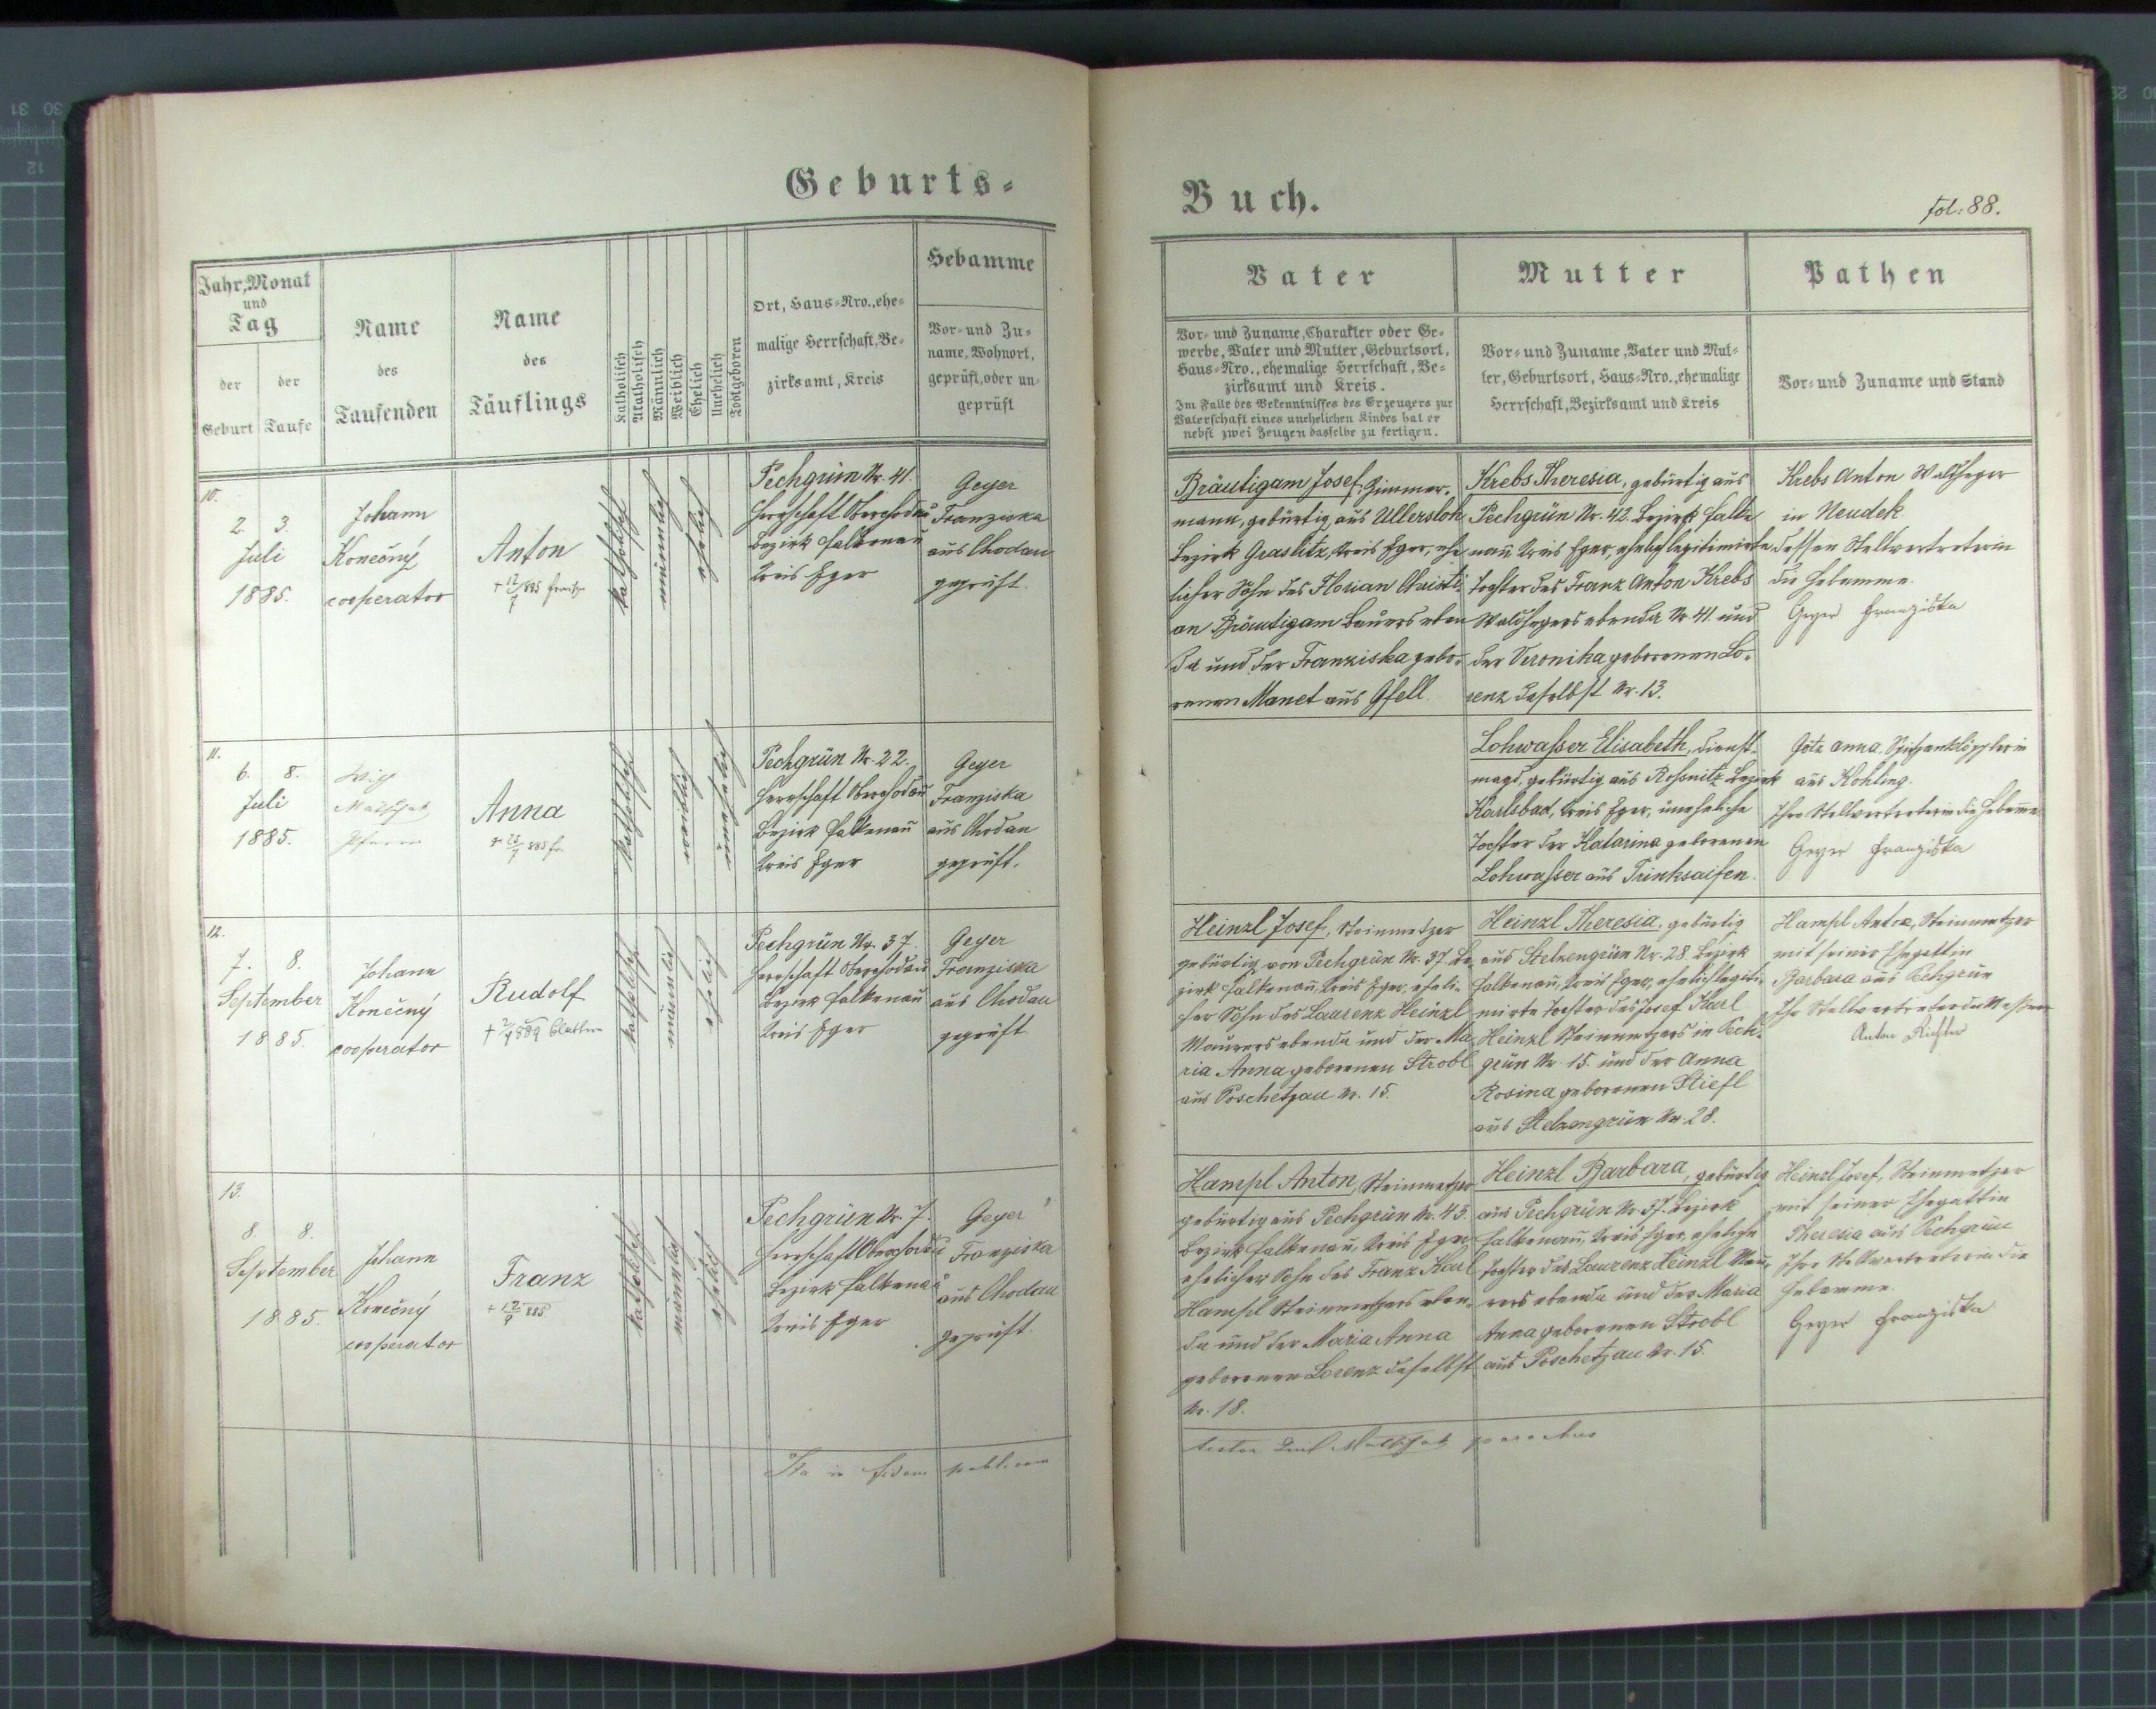 Geburts=
Jahr, Monat
und
Tag
der
Geburt
der
Taufe
Name
des
Taufenden
Name
des
Täuflings
Katholisch
Akatholisch
Männlich
Weiblich
Ehelich
Unehelich
Todtgeboren
Ort, Haus=Nro., ehe=
malige Herrschaft, Be=
zirksamt, Kreis
Hebamme
Vor= und Zu=
name, Wohnort,
geprüft, oder un=
geprüft
10.
2. 3.
Juli
1885.
Johann
Konečný
cooperator
Anton
katholisch
männlich
ehelich
Pechgrün Nr. 41.
Herrschaft Oberchodau
Bezirk Falkenau
Kreis Eger
Geyer
Franziska
aus Chodau
geprüft.
11.
6. 8.
Juli
1885.
Pfarrer
Anna
katholisch
weiblich
unehelich
Pechgrün Nr. 22.
Herrschaft Oberchodau
Bezirk Falkenau
Kreis Eger
Geyer
Franziska
aus Chodau
geprüft.
12.
7. 8.
September
1885.
Johann
Konečný
cooperator
Rudolf
katholisch
männlich
ehelich
Pechgrün Nr. 37.
Herrschaft Oberchodau
Bezirk Falkenau
Kreis Eger
Geyer
Franziska
aus Chodau
geprüft
13.
8. 8.
September
1885.
Johann
Konečný
cooperator
Franz
+ 12/9 885
katholisch
männlich
ehelich
Pechgrün Nr. 7.
Herrschaft Oberchodau
Bezirk Falkenau
Kreis Eger
Geyer
Franziska
aus Chodau
geprüft.
Ita in fidem publicam
Buch.
fol: 88.
Vater
Vor= und Zuname, Charakter oder Ge=
werbe, Vater und Mutter, Geburtsort,
Haus=Nro., ehemalige Herrschaft, Be=
zirksamt und Kreis.
Im Falle des Bekenntnisses des Erzeugers zur
Vaterschaft eines unehelichen Kindes hat er
nebst zwei Zeugen dasselbe zu fertigen.
Mutter
Vor= und Zuname, Vater und Mut=
ter, Geburtsort, Haus=Nro., ehemalige
Herrschaft, Bezirksamt und Kreis
Pathen
Vor= und Zuname und Stand
Bräutigam Josef, Zimmer=
mann, gebürtig aus Ullersloh
Bezirk Graslitz, Kreis Eger, ehe
licher Sohn des Florian Christi=
an Bräutigam Bauers eben
da und der Franziska gebo=
renen Manet aus Gfell.
Krebs Theresia, gebürtig aus
Pechgrün Nr. 42. Bezirk Falke
nau Kreis Eger, ehelich legitimirte
Tochter des Franz Anton Krebs
Waldhegers ebenda Nr 41. und
der Veronika geborenen Lo=
renz daselbst Nr. 13.
Krebs Anton Waldheger
in Neudek
dessen Stellvertreterin
die Hebamme.
Geyer Franziska
Lohwasser Elisabeth, Dienst=
magd, gebürtig aus Rossnitz Bezirk
Karlsbad, Kreis Eger, uneheliche
Tochter der Katarina geborenen
Lohwasser aus Trinksaifen.
Götz Anna, Spitzenklöpplerin
aus Kohling.
Ihre Stellvertreterin die Hebamme
Geyer Franziska
Heinzl Josef, Steinmetzer
gebürtig von Pechgrün Nr. 37. Be
zirk Falkenau, Kreis Eger, eheli=
cher Sohn des Laurenz Heinzl
Maurers ebenda und der Ma
ria Anna geborenen Strobl
aus Poschetzau Nr. 15.
Heinzl Theresia, gebürtig
aus Stelzengrün Nr. 28. Bezirk
Falkenau, Kreis Eger, ehelich legiti=
mirte Tochter des Josef Karl
Heinzl Steinmetzers in Pech=
grün Nr. 15. und der Anna
Rosina geborenen Stiefl
aus Stelzengrün Nr. 28.
Hampl Anton, Steinmetzer
mit seiner Ehegattin
Barbara aus Pechgrün
Ihr Stellvertreter
Anton Richter
Hampl Anton, Steinmetzer
gebürtig aus Pechgrün Nr. 43.
Bezirk Falkenau, Kreis Eger
ehelicher Sohn des Franz Karl
Hampl Steinmetzers eben=
da und der Maria Anna
geborenen Lorenz daselbst
Nr. 18.
Heinzl Barbara, gebürtig
aus Pechgrün Nr. 37. Bezirk
Falkenau, Kreis Eger, eheliche
Tochter des Laurenz Heinzl Mau=
rers ebenda und der Maria
Anna geborenen Strobl
aus Poschetzau Nr. 15.
Heinzl Josef, Steinmetzer
mit seiner Ehegattin
Theresia aus Pechgrün
Ihre Stellvertreterin die
Hebamme.
Geyer Franziska
parochus